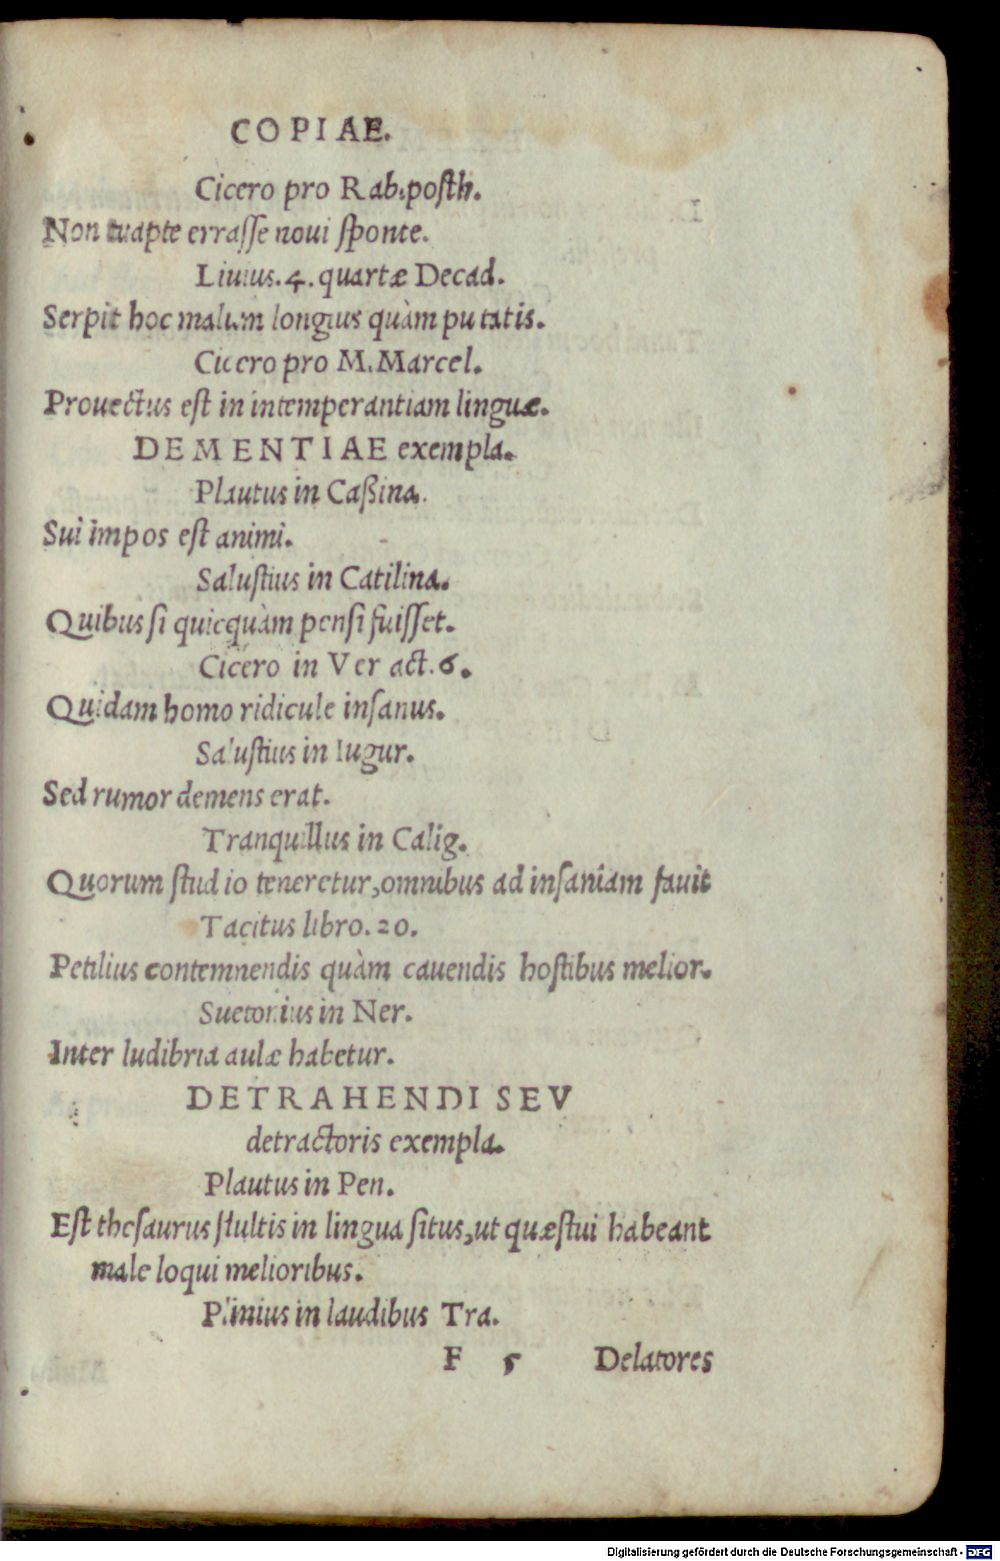 COPIAE.
Cicero pro Rab.posth.
Non tuapte errasse noui sponte.
Liuius.4.quartæ Decad.
Serpit hoc malum longius quàm putatis.
Cicero pro M.Marcel.
Prouectus est in intemperantiam linguæ.
DEMENTIAE exempla.
Plautus in Caßina.
Sui impos est animi.
Salustius in Catilina.
Quibus si quicquàm pensi fuisset.
Cicero in Ver act.6.
Quidam homo ridicule insanus.
Salustius in Iugur.
Sed rumor demens erat.
Tranquillus in Calig.
Quorum studio teneretur,omnibus ad insaniam fauit
Tacitus libro.20.
Petilius contemnendis quàm cauendis hostibus melior.
Suetonius in Ner.
Inter ludibria aulæ habetur.
DETRAHENDI SEV
detractoris exempla.
Plautus in Pen.
Est thesaurus stultis in lingua situs,ut quæstui habeant
male loqui melioribus.
Plinius in laudibus Tra.
F 5 Delatores
Digitalisierung gefördert durch die Deutsche Forschungsgemeinschaft - DFG